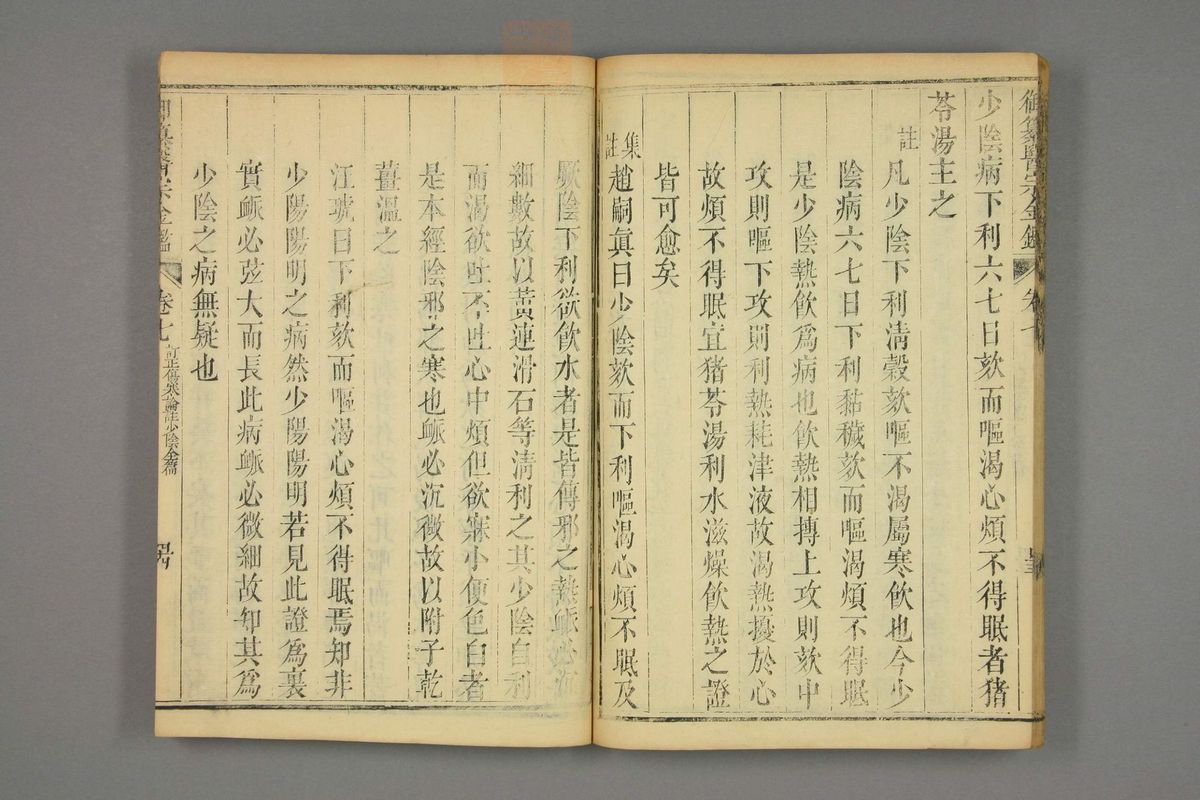 御纂醫宗金鑑 卷七
少陰病下利六七日欬而嘔渴心煩不得眠者猪
苓湯主之
註
凡少陰下利清穀欬嘔不渴屬寒飲也今少
陰病六七日下利黏穢欬而嘔渴煩不得眠
是少陰熱飲爲病也飲熱相摶上攻則欬中
攻則嘔下攻則利熱耗津液故渴熱擾於心
故煩不得眠宜猪苓湯利水滋燥飲熱之證
皆可愈矣
集註
趙嗣眞曰少陰欬而下利嘔渴心煩不眠及
厥陰下利欲飲水者是皆傳邪之熱脈必沉
細數故以黃連滑石等清利之其少陰自利
而渴欲吐不吐心中煩但欲寐小便色白者
是本經陰邪之寒也脈必沉微故以附子乾
薑溫之
江琥曰下利欬而嘔渴心煩不得眠焉知非
少陽陽明之病然少陽陽明若見此證爲裏
實脈必弦大而長此病脈必微細故知其爲
少陰之病無疑也
御纂醫宗金鑑 卷七 訂正傷寒論註少陰全篇